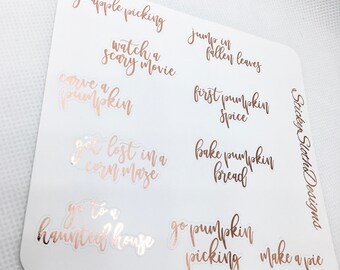 apple picking
jump in
fallen leaves
watch a
scary movie
carve a
pumpkin
first pumpkin
spice
get lost in a
corn maze
bake pumpkin
bread
go to a
haunted house
go pumpkin
picking
make a pie